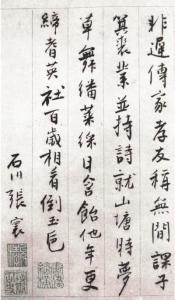 非遲傳家孝友稱無間課子
箕裘業並持詩就山塘時夢
草舞繙菜綵日含飴他年更
締耆英社百歲相看倒玉巵
石川張寰